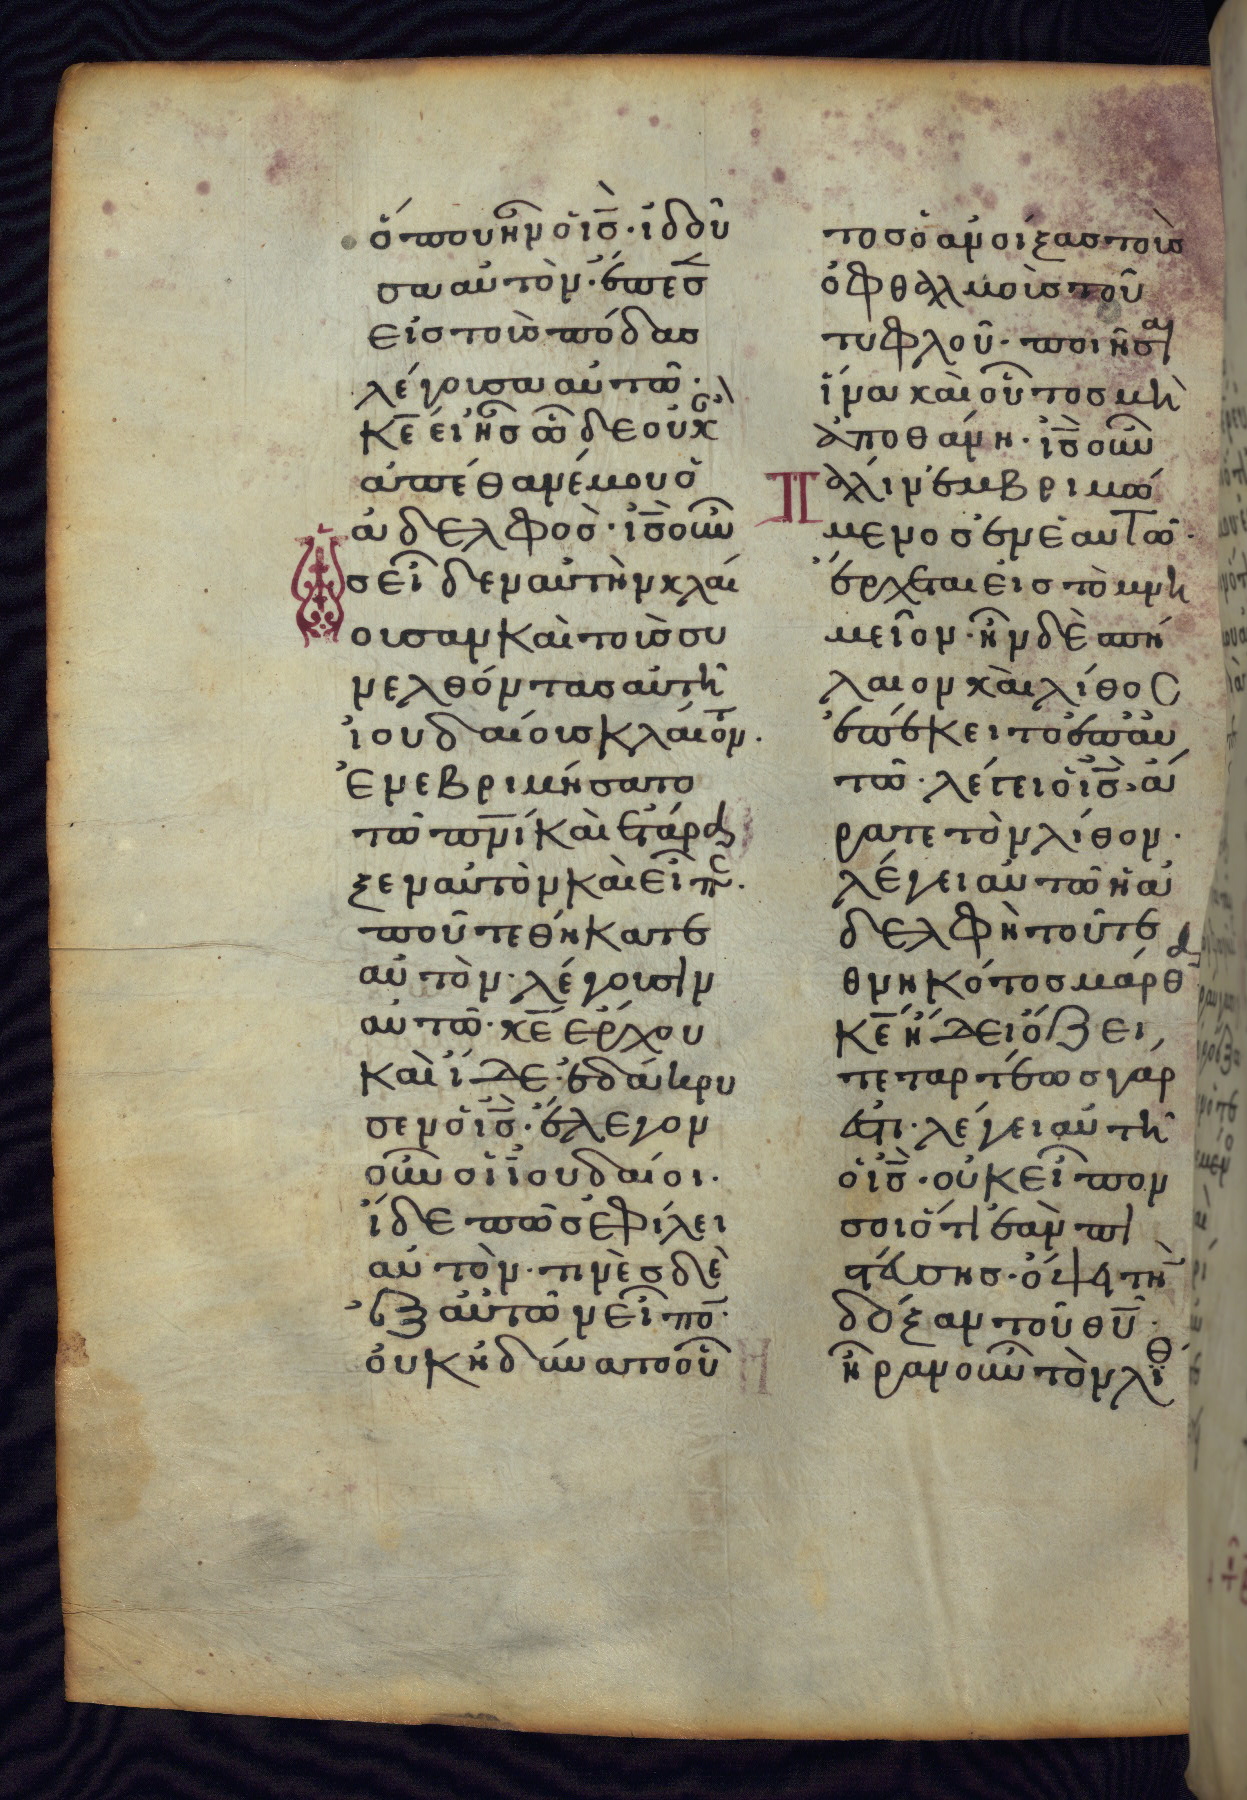 ὅπου ἦν ὁ ισ̅· ἰδοῦ
σα αὐτὸν· ἔπεσ̅
εἰς τοὺσ πόδας
λέγουσα αὐτῶ·
κε̅ εἰ ἦσ ὧδε οὐκ
ἀπέθανέ μου ὁ
ἀδελφοσ· ισ̅ οὖν
ὡσ εἶδεν αὐτὴν κλαί
ουσαν καὶ τοὺσ συ
νελθόντασ αὐτῆ
ἰουδαίουσ κλαίοντ.
Ἐνεβριμήσατο
τῶ πν̅ι καὶ ἐτάρα
ξεν αὐτὸν καὶ εἶπε.
ποῦ τεθήκατε
αὐτὸν· λέγουσιν
αὐτῶ· κε̅ ἔρχου
καὶ ἴδε· ἐδάκρυ
σεν ὁ ισ̅· ἔλεγον
οὖν οἱ ἰουδαίοι·
ἴδε πῶσ ἐφίλει
αὐτὸν· τινὲσ δὲ
ἐξ αὐτῶν εἶπο̅·
οὐκ ἠδύνατο οὗ
τοσ ὁ ἀνοίξασ τοὺσ
ὀφθαλμοὺσ τοῦ
τυφλοῦ· ποιῆσαι
ἵνα καὶ οὗτοσ μὴ
ἀποθάνη· ισ̅ οὖν
Πάλιν ἐμβριμώ
μενοσ ἐν ἑαυτῶ·
ἔρχεται εἰσ τὸ μνη
μεῖον· ἦν δὲ σπή
λαιον καὶ λίθοσ
ἐπέκειτο ἐπ αυ
τῶ· λέγει ὁ ισ̅· ἄ
ρατε τὸν λίθον·
λέγει αὐτῶ ἡ ἀ
δελφὴ τοῦ τε
θνηκότοσ μάρθα
κε̅ ἤδει ὄζει,
τεταρτέοσ γάρ
ἐστι· λέγει αὐτῆ
ὁ ισ̅· οὐκ εἶπον
σοι ὅτι ἐὰν πι
στεύσησ· ὄψη τὴν
δόξαν τοῦ θυ̅·
ἦραν οὖν τὸν λίθ